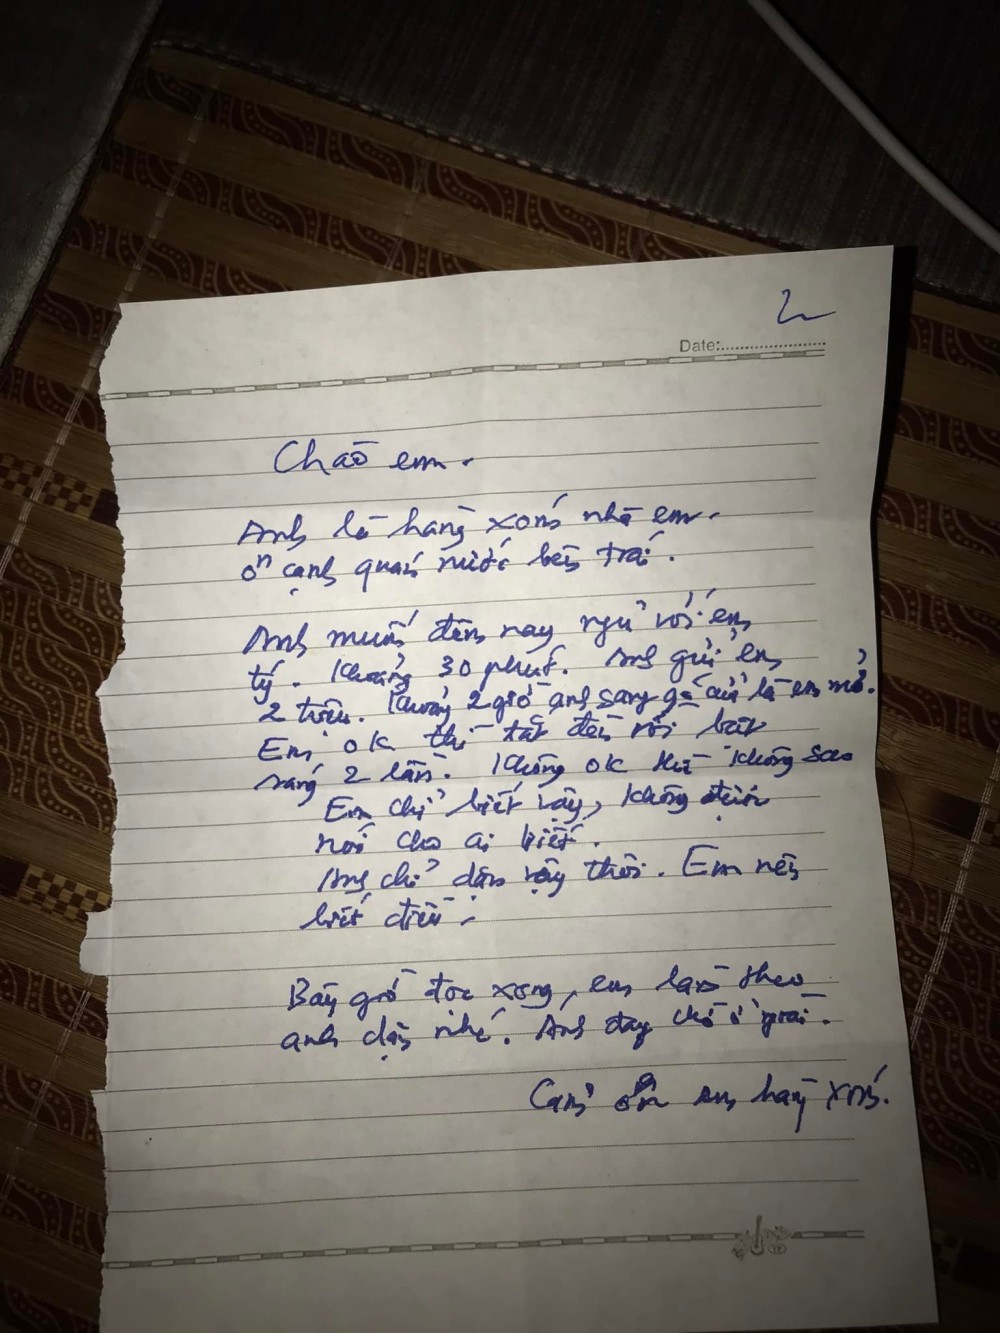 2
Date:........................
Chào em.
Anh là hàng xóm nhà em.
ở cạnh quán nước bên trái.
Anh muốn đêm nay ngủ với em
tý. Khoảng 30 phút. Anh gửi em
2 triệu. Khoảng 2 giờ anh sang gõ cửa là em mở.
Em ok thì tắt đèn rồi bật
sáng 2 lần. Không ok thì không sao
Em chỉ biết vậy, không được
nói cho ai biết.
Anh chỉ dặn vậy thôi. Em nên
biết điều.
Bây giờ đọc xong, em làm theo
anh dặn nhé. Anh đang chờ ở
Cảm ơn Anh hàng xóm.